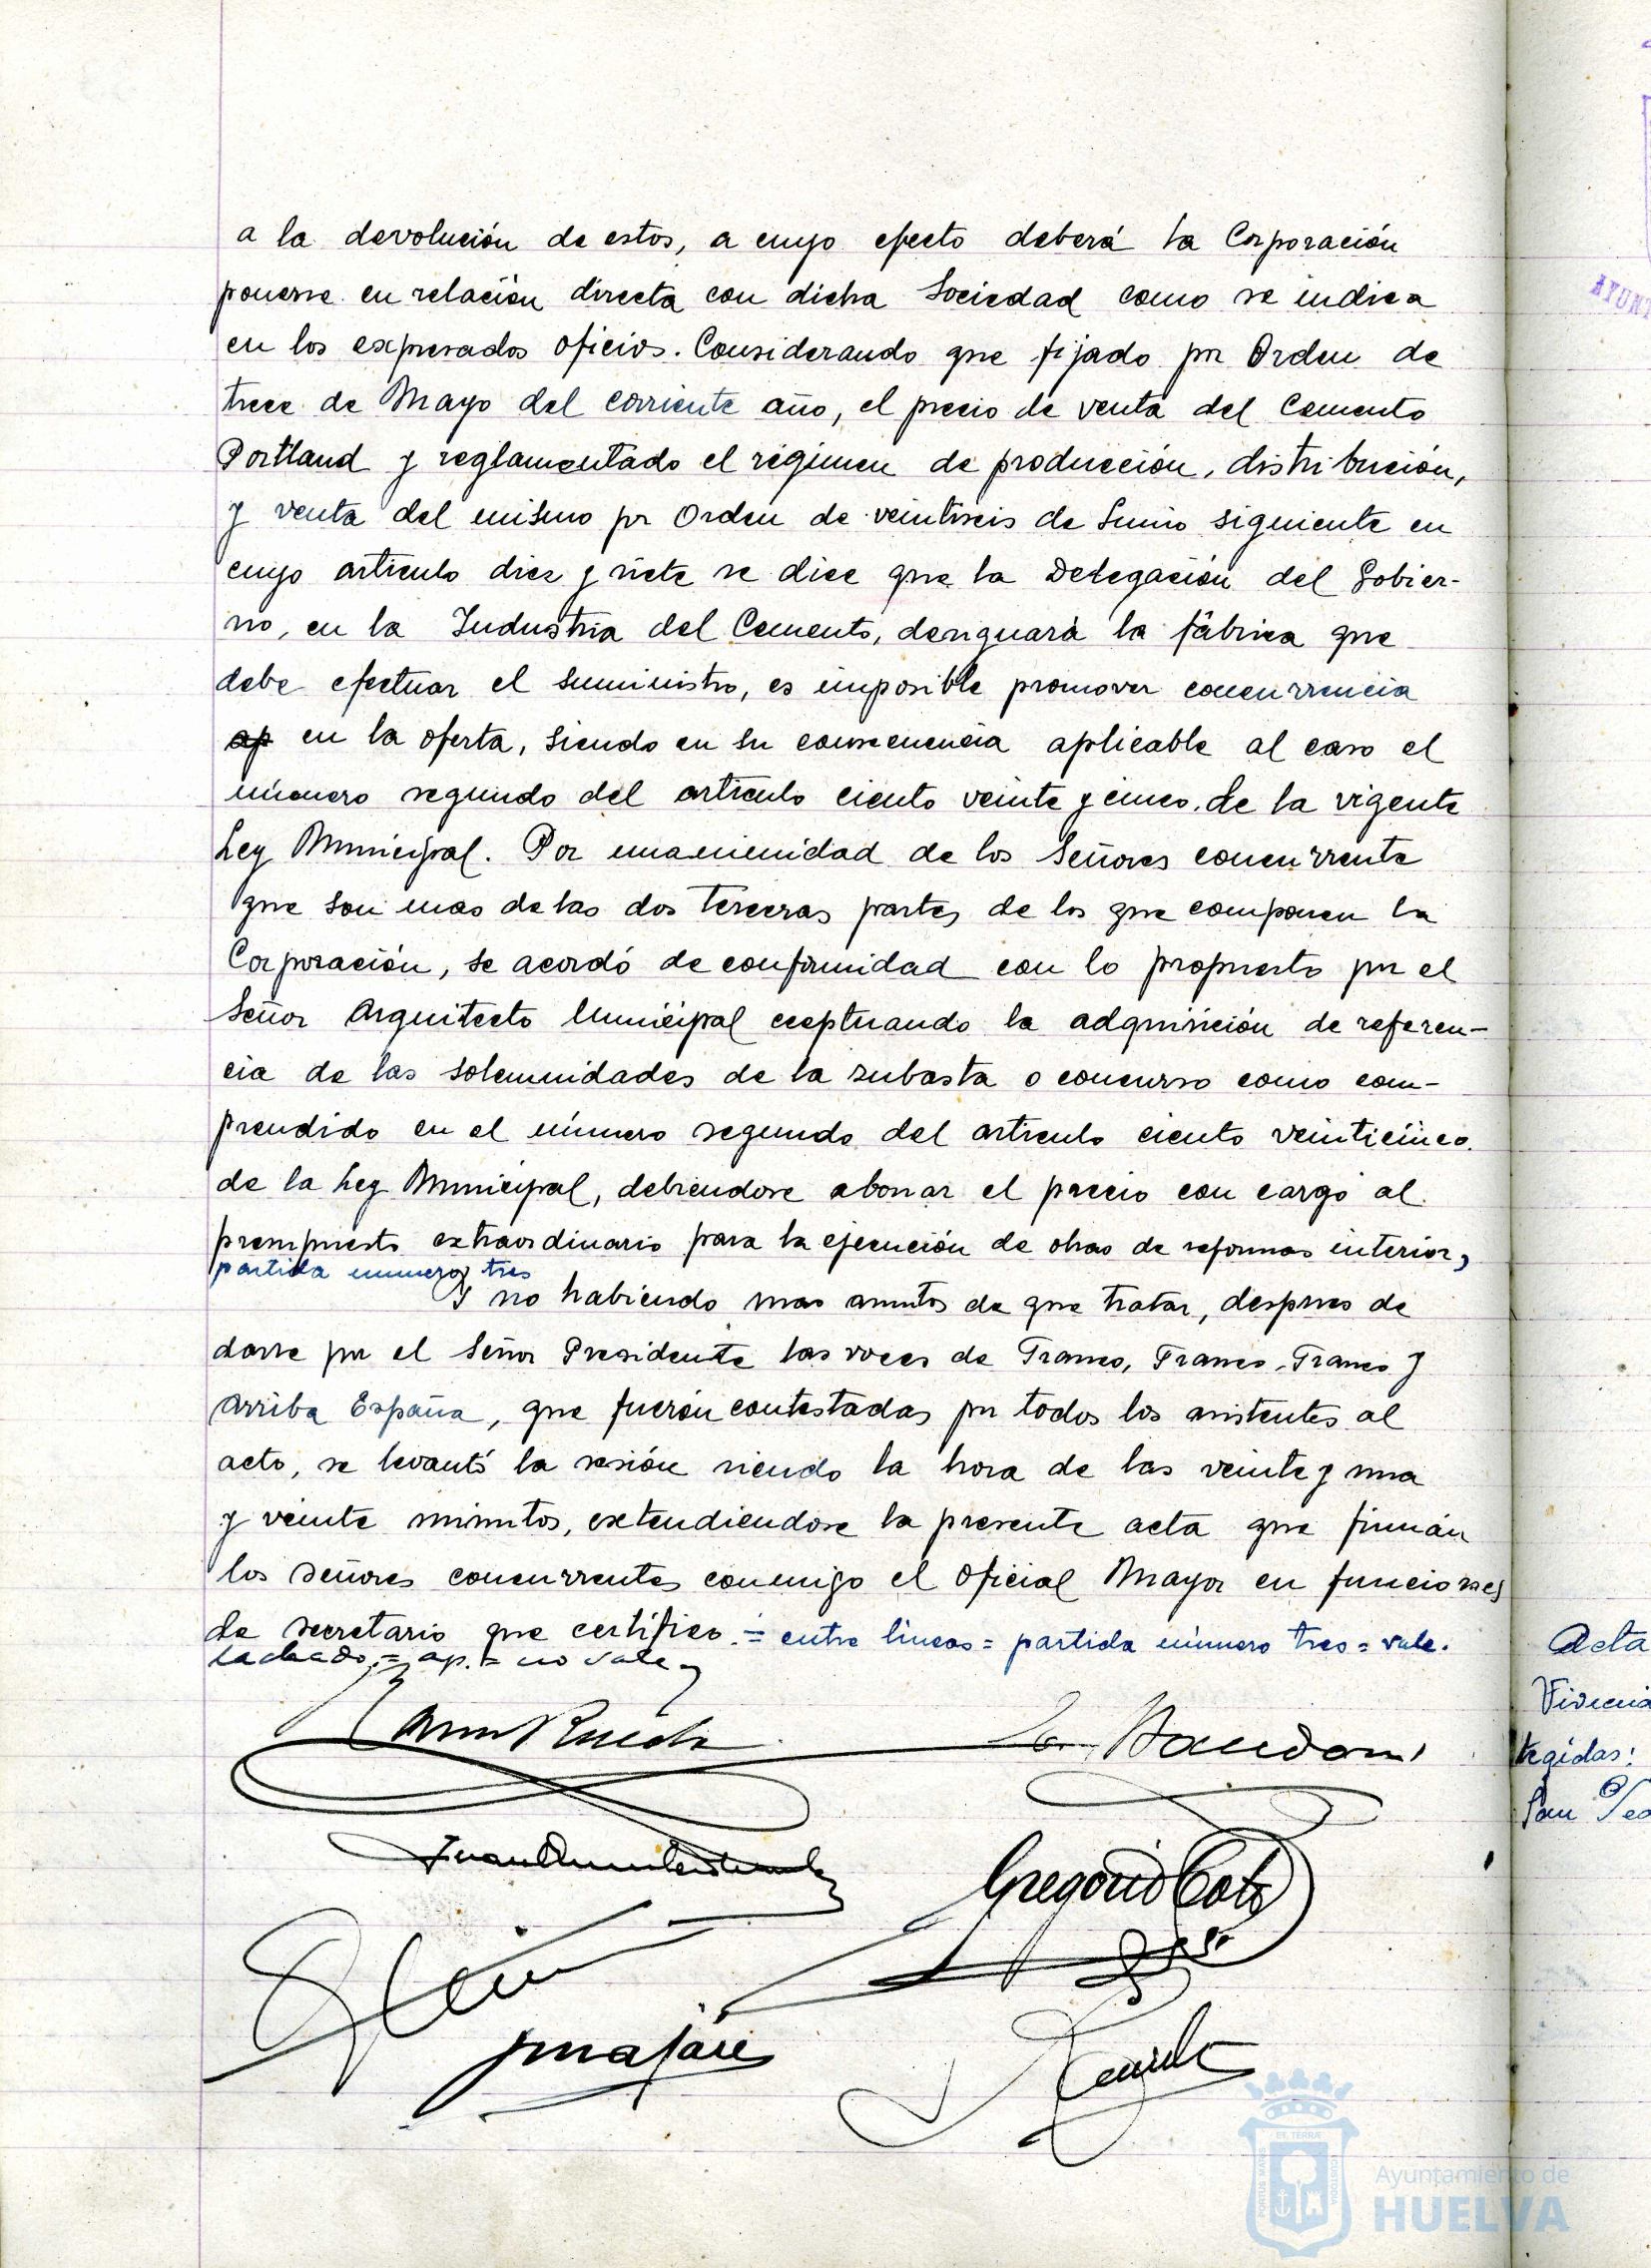 a la devolución de estos, a cuyo efecto deberá la Corporación
ponerse en relación directa con dicha Sociedad como se indica
en los expresados oficios. Considerando que fijado por Orden de
trece de Mayo del corriente año, el precio de venta del Cemento
Portland y reglamentado el régimen de producción, distribución,
y venta del mismo por Orden de veintiseis de Junio siguiente en
cuyo articulo diez y siete se dice que la Delegación del Gobier-
no, en la Industria del Cemento, designará la fábrica que
debe efectuar el suministro, es imposible promover concurrencia
ap en la oferta, siendo en su consecuencia aplicable al caso el
número segundo del articulo ciento veinte y cinco de la vigente
Ley Municipal. Por unanimidad de los Señores concurrente
que son mas de las dos terceras partes de los que componen la
Corporación, se acordó de conformidad con lo propuesto por el
Señor Arquitecto Municipal exeptuando la adquisición de referen-
cia de las solemnidades de la subasta o concurso como com-
prendido en el número segundo del articulo ciento veinticinco
de la Ley Municipal, debiendose abonar el precio con cargo al
presupuesto extraordinario para la ejecución de obras de reformas interior,
partida numero tres
Y no habiendo mas asuntos de que tratar, despues de
darse por el Señor Presidente las voces de Franco, Franco, Franco y
Arriba España, que fuerón contestadas por todos los asistentes al
acto, se levantó la sesión siendo la hora de las veinte y una
y veinte minutos, extendiendose la presente acta que firmán
los señores concurrentes conmigo el Oficial Mayor en funciones
de secretario que certifico. = entre lineas = partida número tres = vale.
tachado = ap. = no vale
Gregorio Coto
Acta
Vivienda
tegidas:
San Ped
AYUNT
Ayuntamiento de
HUELVA